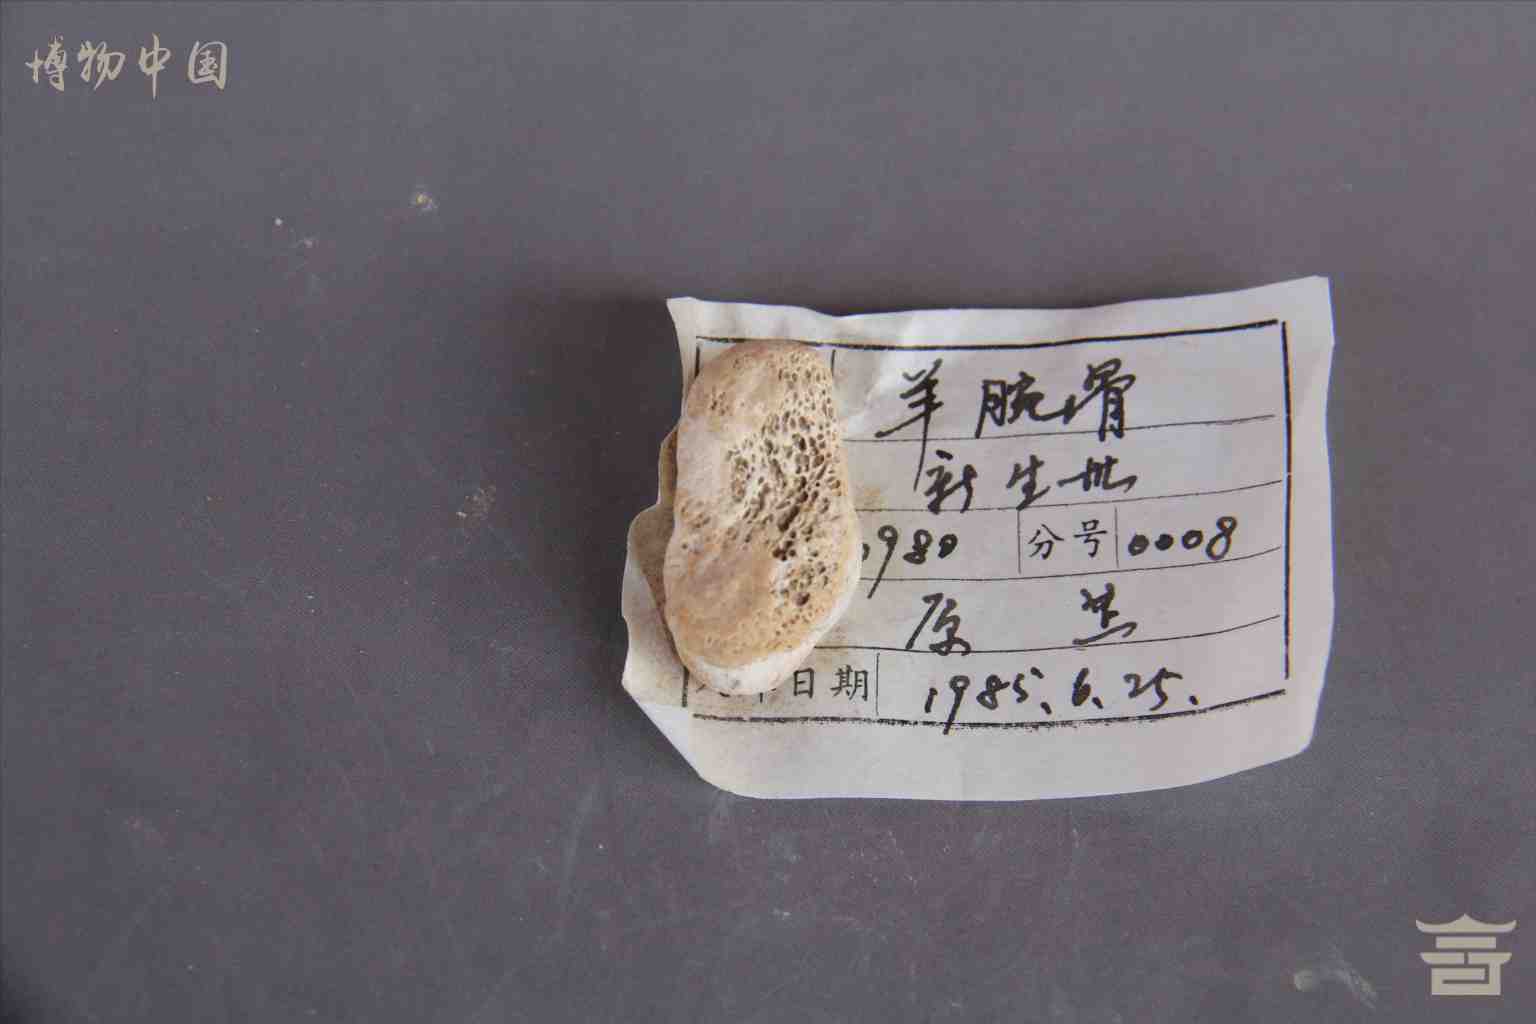 博物中国
羊腕骨
新生世
1980 分号 0008
原
日期 1985.6.25.